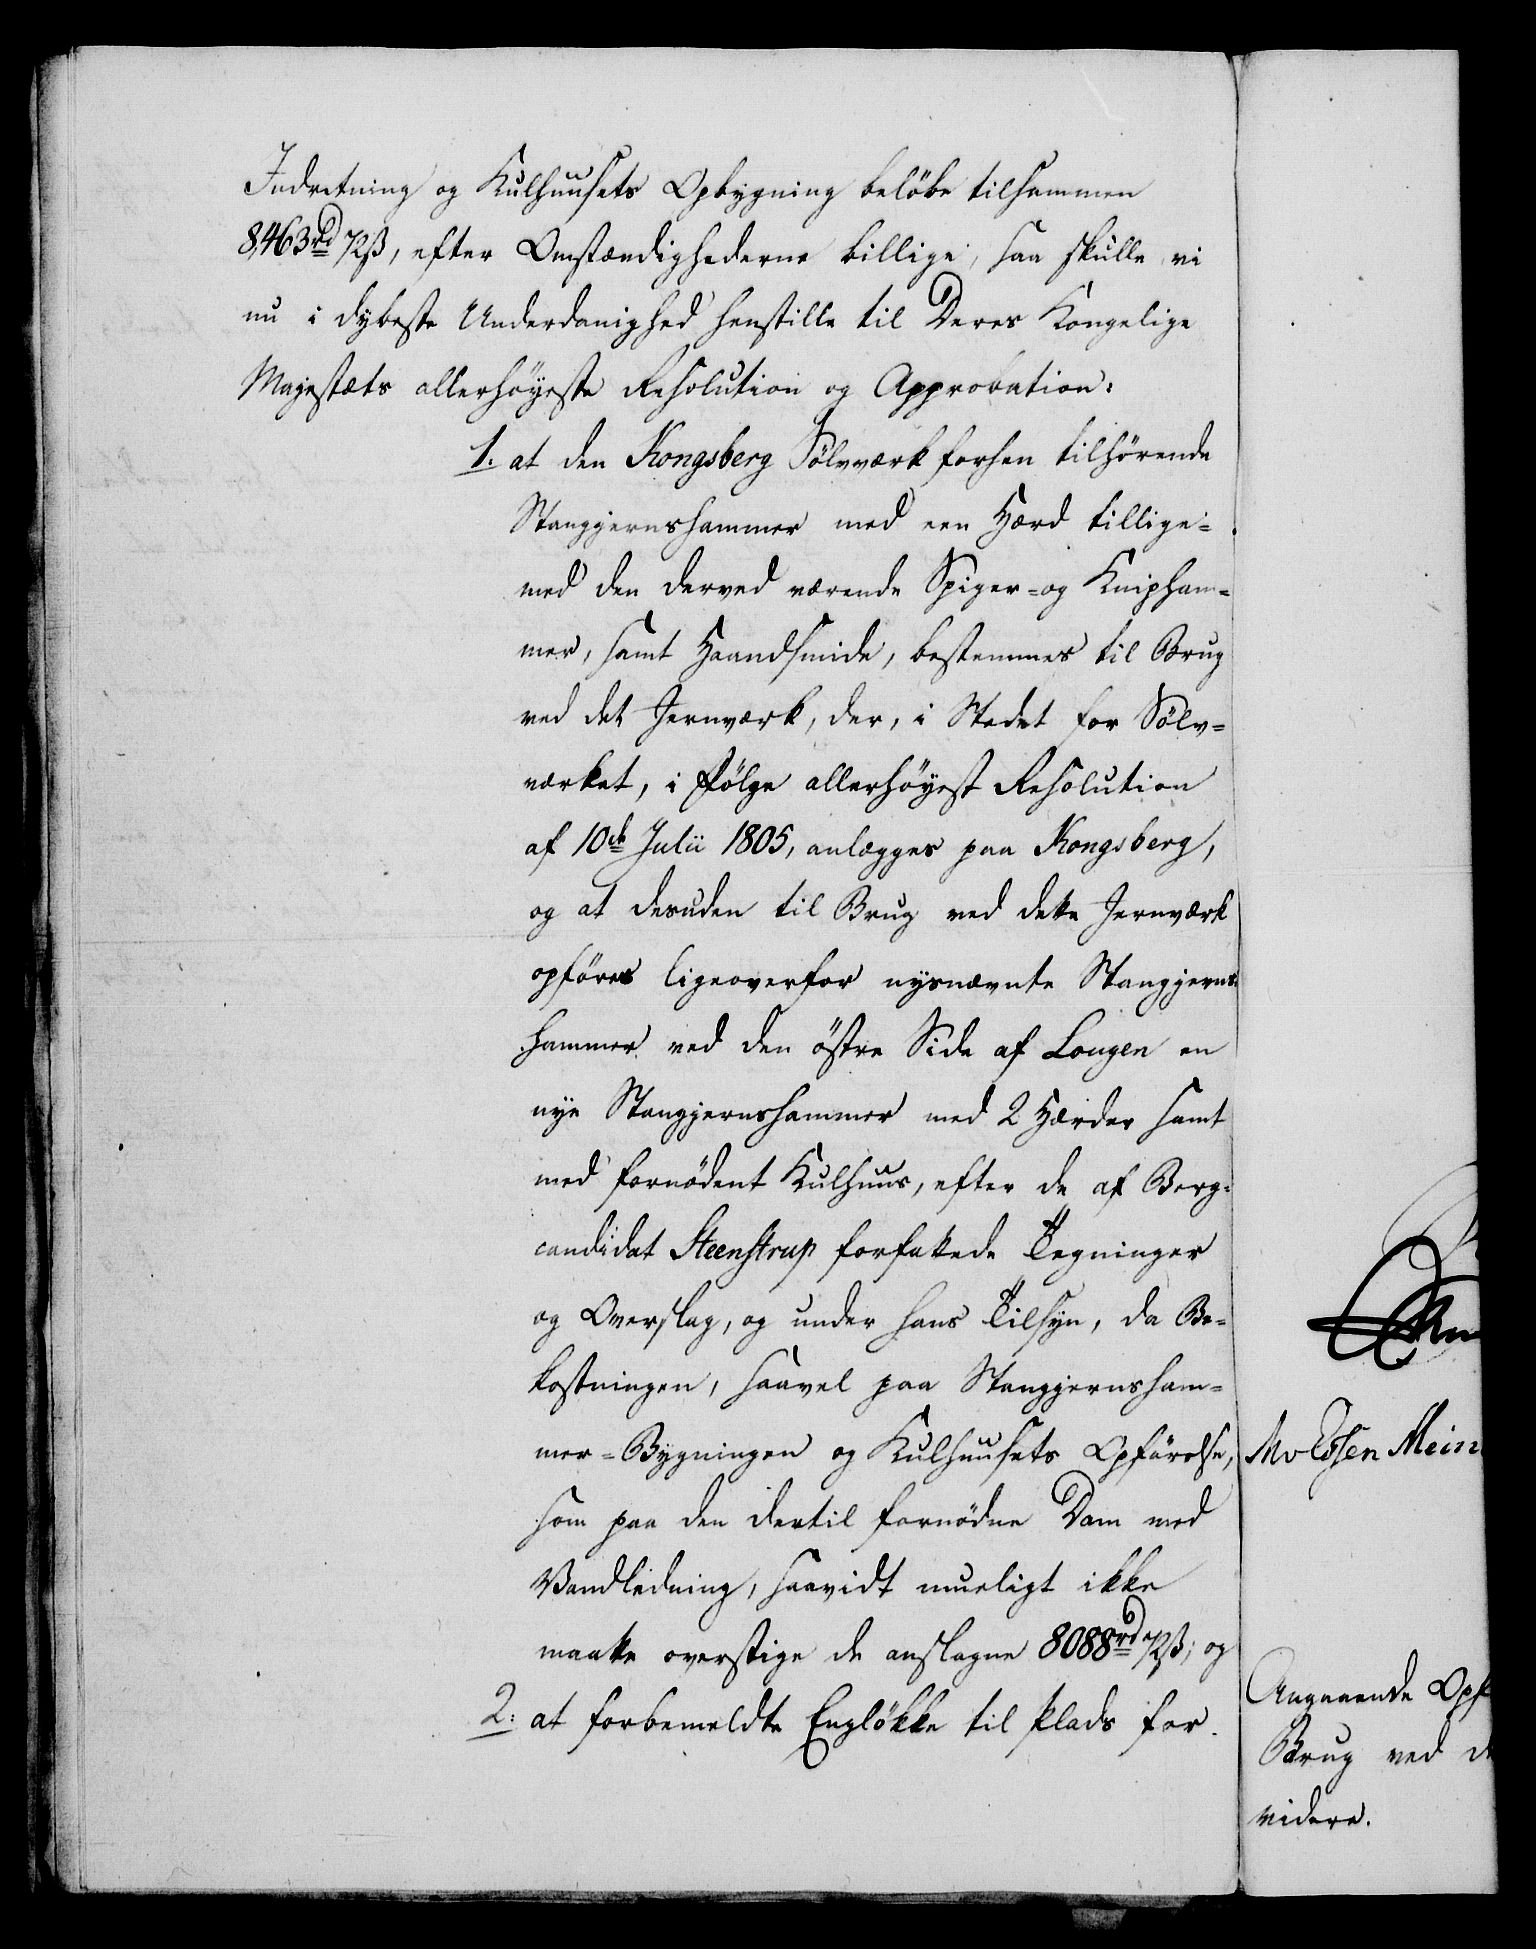 Indretning og Kulhuusets Opbygning beløbe tilsammen
8,463rd 72ß, efter Omstændighederne billige, saa skulle vi
nu i dybeste Underdanighed henstille til Deres Kongelige
Majestæts allerhøyeste Resolution og Approbation:
1. at den Kongsberg Sølvværk forhen tilhørende
Stangjernshammer med een Hærd tillige=
med den derved værende Spiger=og Knipham=
mer, samt Haandsmide, bestemmes til Brug
ved det Jernværk, der, i Stedet for Sølv=
værket, i Følge allerhøyest Resolution
af 10de Julii 1805, anlægges paa Kongsberg,
og at desuden til Brug ved dette Jernværk
opføres ligeoverfor nysnævnte Stangjerns=
hammer ved den østre Side af Lougen en
nye Stangjernshammer med 2 Hærder samt
med fornødent Kulhuus, efter de af Berg=
candidat Steenstrup forfattede Tegninger
og Overslag, og under hans Tilsyn, da Be=
kostningen, saavel paa Stangjernsham=
mer=Bygningen og Kulhuusets Opførelse,
som paa den dertil fornødne Dam med
Vandledning, saavidt mueligt ikke
maatte overstige de anslagne 8088rd 72ß; og
2. at forbemeldte Engløkke til Plads for
Mv Essen Mein
Angaaende Opf
Brug ved d
videre.